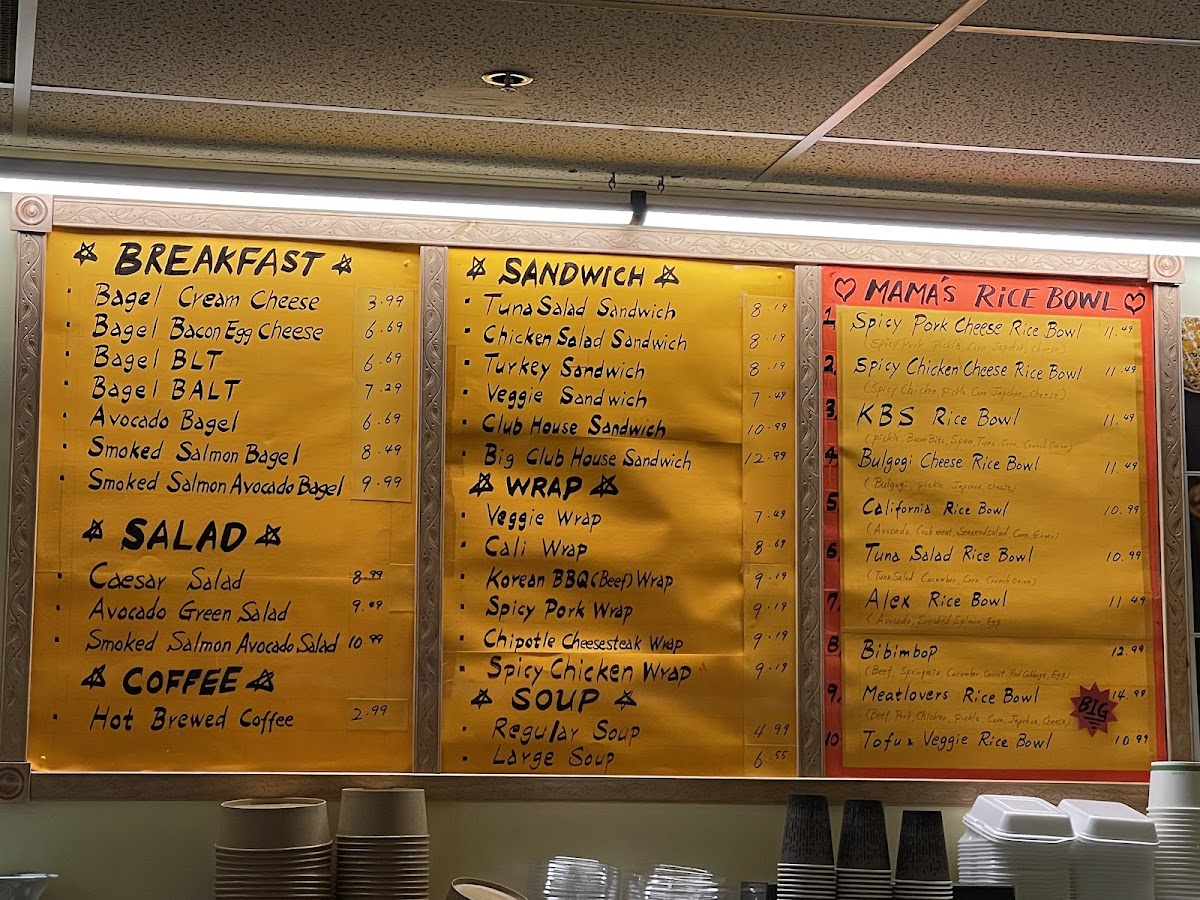 BREAKFAST
Bagel Cream Cheese 3.99
Bagel Bacon Egg Cheese 6.69
Bagel BLT 6.69
Bagel BALT 7.29
Avocado Bagel 6.69
Smoked Salmon Bagel 8.49
Smoked Salmon Avocado Bagel 9.99
SALAD
Caesar Salad 8.99
Avocado Green Salad 9.49
Smoked Salmon Avocado Salad 10.99
COFFEE
Hot Brewed Coffee 2.99
SANDWICH
Tuna Salad Sandwich 8.19
Chicken Salad Sandwich 8.19
Turkey Sandwich 8.19
Veggie Sandwich 7.49
Club House Sandwich 10.99
Big Club House Sandwich 12.99
WRAP
Veggie Wrap 7.49
Cali Wrap 8.69
Korean BBQ (Beef) Wrap 9.19
Spicy Pork Wrap 9.19
Chipotle Cheesesteak Wrap 9.19
Spicy Chicken Wrap 9.19
SOUP
Regular Soup 4.99
Large Soup 6.55
MAMA'S RICE BOWL
1. Spicy Pork Cheese Rice Bowl 11.49
(Spicy Pork, Pickle, Corn, Japchae, Cheese)
2. Spicy Chicken Cheese Rice Bowl 11.49
(Spicy Chicken, Pickle, Corn, Japchae, Cheese)
3. KBS Rice Bowl 11.49
(Pickle, Bacon Bits, Spam, Tuna, Corn, Crunch Onion)
4. Bulgogi Cheese Rice Bowl 11.49
(Bulgogi, Pickle, Japchae, Cheese)
5. California Rice Bowl 10.99
(Avocado, Crab meat, Seaweed Salad, Corn, Ginger)
6. Tuna Salad Rice Bowl 10.99
(Tuna Salad, Cucumber, Corn, Crunch Onion)
7. Alex Rice Bowl 11.49
(Avocado, Smoked Salmon, Egg
8. Bibimbop 12.99
(Beef, Springmix, Cucumber, Carrot, Red Cabbage, Egg)
9. Meatlovers Rice Bowl BIG 14.99
(Beef, Pork, Chicken, Pickle, Corn, Japchae, Cheese)
10 Tofu & Veggie Rice Bowl 10.99